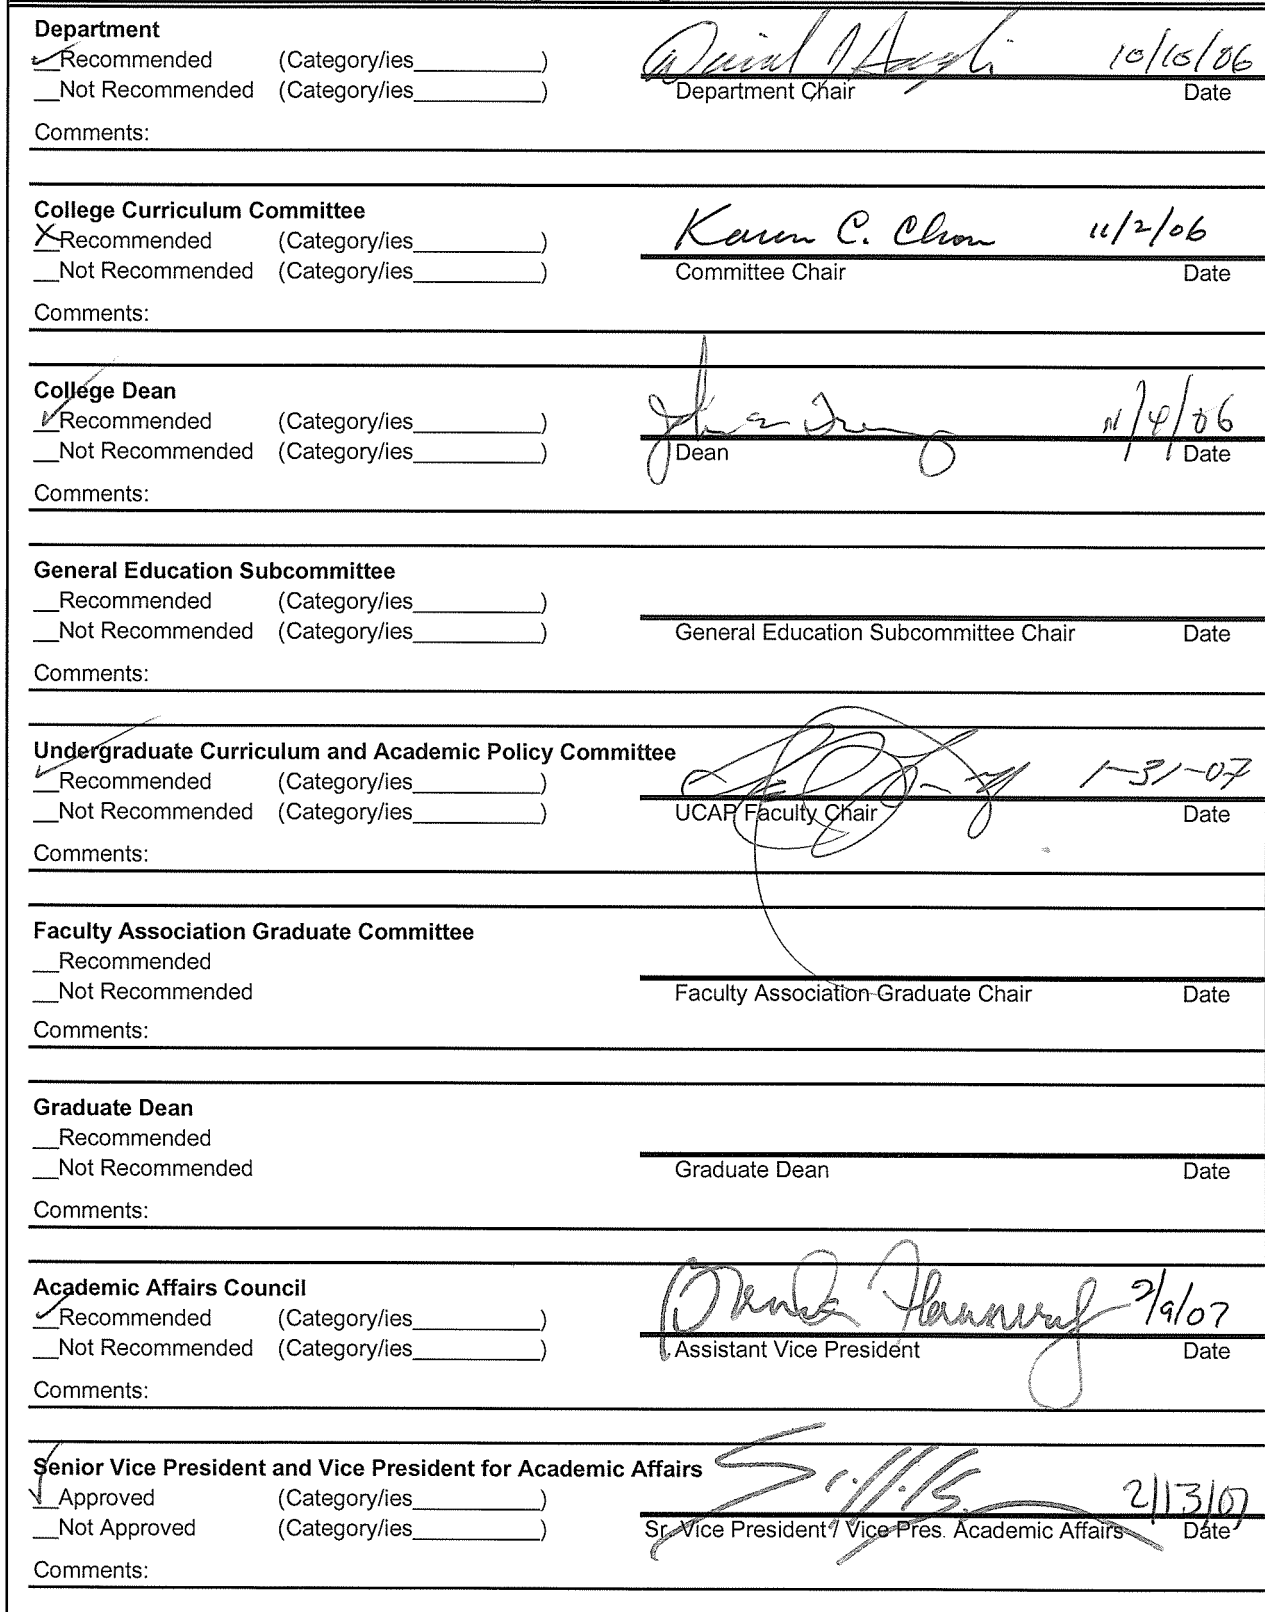 Department
__Recommended (Category/ies__________)
__Not Recommended (Category/ies__________)
Department Chair Date
Comments:
College Curriculum Committee
X Recommended (Category/ies__________) Karen C. Chou 11/2/06
__Not Recommended (Category/ies__________)
Committee Chair Date
Comments:
College Dean
__Recommended (Category/ies__________)
__Not Recommended (Category/ies__________)
Dean Date
Comments:
General Education Subcommittee
__Recommended (Category/ies__________)
__Not Recommended (Category/ies__________)
General Education Subcommittee Chair Date
Comments:
Undergraduate Curriculum and Academic Policy Committee
__Recommended (Category/ies__________) 1-31-07
__Not Recommended (Category/ies__________)
UCAP Faculty Chair Date
Comments:
Faculty Association Graduate Committee
__Recommended
__Not Recommended
Faculty Association Graduate Chair Date
Comments:
Graduate Dean
__Recommended
__Not Recommended
Graduate Dean Date
Comments:
Academic Affairs Council
__Recommended (Category/ies__________) 2/9/07
__Not Recommended (Category/ies__________)
Assistant Vice President Date
Comments:
Senior Vice President and Vice President for Academic Affairs
__Approved (Category/ies__________) 2/13/07
__Not Approved (Category/ies__________)
Sr. Vice President / Vice Pres. Academic Affairs Date
Comments: